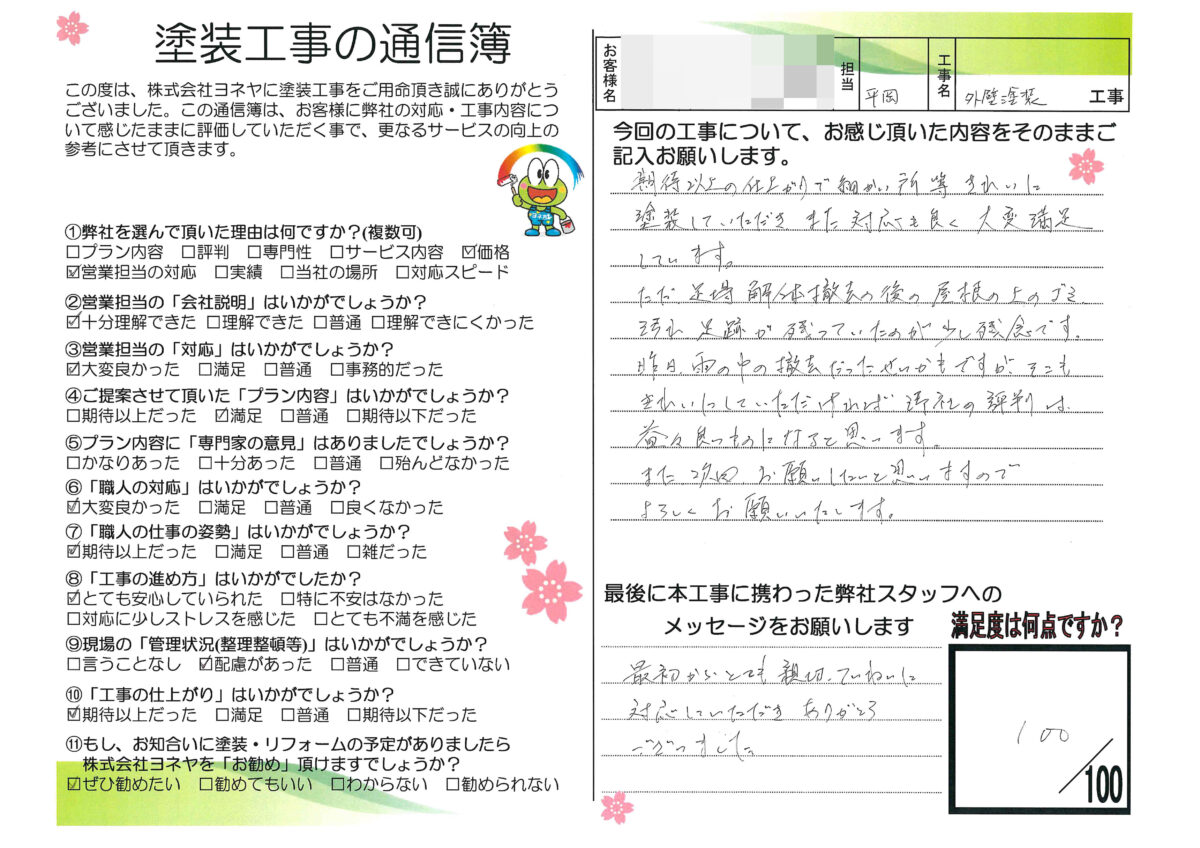 塗装工事の通信簿
この度は、株式会社ヨネヤに塗装工事をご用命頂き誠にありがとう
ございました。この通信簿は、お客様に弊社の対応・工事内容につ
いて感じたままに評価していただく事で、更なるサービスの向上の
参考にさせて頂きます。
①弊社を選んで頂いた理由は何ですか？(複数可)
□プラン内容 □評判 □専門性 □サービス内容 ☑価格
☑営業担当の対応 □実績 □当社の場所 □対応スピード
②営業担当の「会社説明」はいかがでしょうか？
☑十分理解できた □理解できた □普通 □理解できにくかった
③営業担当の「対応」はいかがでしょうか？
☑大変良かった □満足 □普通 □事務的だった
④ご提案させて頂いた「プラン内容」はいかがでしょうか？
□期待以上だった ☑満足 □普通 □期待以下だった
⑤プラン内容に「専門家の意見」はありましたでしょうか？
□かなりあった □十分あった □普通 □殆んどなかった
⑥「職人の対応」はいかがでしょうか？
☑大変良かった □満足 □普通 □良くなかった
⑦「職人の仕事の姿勢」はいかがでしょうか？
☑期待以上だった □満足 □普通 □雑だった
⑧「工事の進め方」はいかがでしたか？
☑とても安心していられた □特に不安はなかった
□対応に少しストレスを感じた □とても不満を感じた
⑨現場の「管理状況(整理整頓等)」はいかがでしょうか？
□言うことなし ☑配慮があった □普通 □できていない
⑩「工事の仕上がり」はいかがでしょうか？
☑期待以上だった □満足 □普通 □期待以下だった
⑪もし、お知合いに塗装・リフォームの予定がありましたら
株式会社ヨネヤを「お勧め」頂けますでしょうか？
☑ぜひ勧めたい □勧めてもいい □わからない □勧められない
お客様名 担当 平岡 工事名 外壁塗装 工事
今回の工事について、お感じ頂いた内容をそのままご
記入お願いします。
期待以上の仕上がりで細かい所等きれいに
塗装していただきまた対応も良く大変満足
しています。
ただ足場解体撤去の後の屋根の上のゴミ、
汚れ足跡が残っていたのが少し残念です。
昨日雨の中の撤去だったせいかもですが、そこも
きれいにしていただければ御社の評判は、
益々良いものになると思います。
また次回お願いしたいと思いますので
よろしくお願いいたします。
最後に本工事に携わった弊社スタッフへの
メッセージをお願いします
最初からとても親切、ていねいに
対応していただきありがとう
ございました
満足度は何点ですか？
100
/100